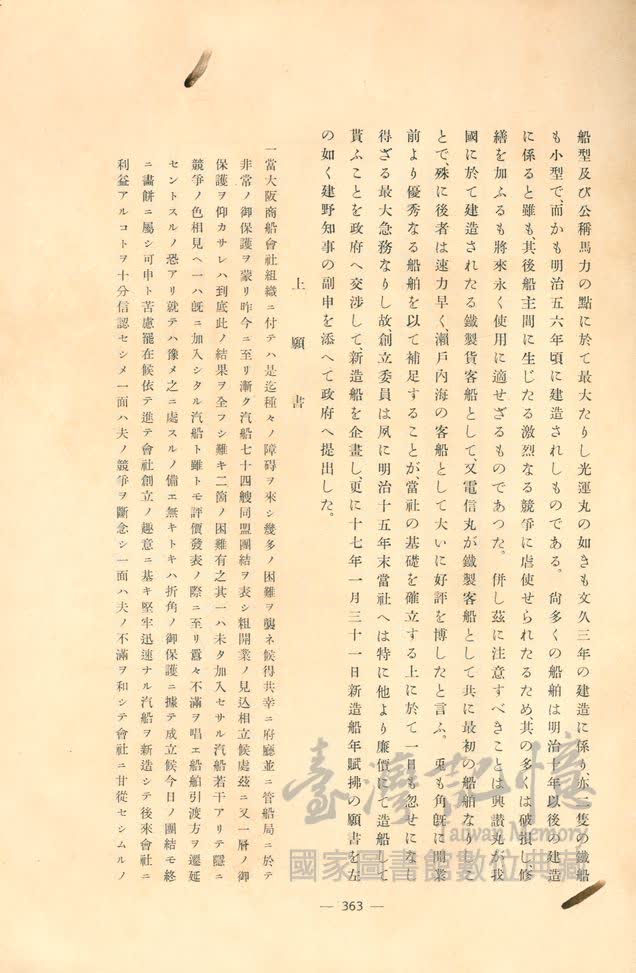 船型及び公稱馬力の點に於て最大たりし光運丸の如きも文久三年の建造に係り、亦二隻の鐵船
も小型で、而かも明治五六年頃に建造されしものである。尙多くの船舶は明治十年以後の建造
に係ると雖も、其後船主間に生じたる激烈なる競爭に虐使せられたるため、其の多くは破損し、修
繕を加ふるも將來永く使用に適せざるものであつた。併し茲に注意すべきことは興讃丸が我
國に於て建造されたる鐵製貨客船として、又電信丸が鐵製客船として共に最初の船舶なりしこ
とで、殊に後者は速力早く、瀨戶內海の客船として大いに好評を博したと言ふ。兎も角旣に開業
前より優秀なる船舶を以て補足することが、當社の基礎を確立する上に於て一日も忽せになし
得ざる最大急務なりし故、創立委員は夙に明治十五年末當社へは特に他より廉價にて造船して
貰ふことを政府へ交涉して、新造船を企畫し、更に十七年一月三十一日新造船年賦拂の願書を左
の如く建野知事の副申を添へて政府へ提出した。
上願書
一當大阪商船會社組織ニ付テハ是迄種々ノ障碍ヲ來シ幾多ノ困難ヲ襲ネ候得共幸ニ府廳並ニ管船局ニ於テ
非常ノ御保護ヲ蒙リ昨今ニ至リ漸ク汽船七十四艘同盟團結ヲ表シ粗開業ノ見込相立候處茲ニ又一層ノ御
保護ヲ仰カサレハ到底此ノ結果ヲ全フシ難キ二箇ノ困難有之其一ハ未タ加入セサル汽船若干アリテ隱ニ
競爭ノ色相見ヘ一ハ旣ニ加入シタル汽船ト雖トモ評價發表ノ際ニ至リ囂々不滿ヲ唱ヱ船舶引渡方ヲ遷延
セントスルノ恐アリ就テハ豫メ之ニ處スルノ備ヱ無キトキハ折角ノ御保護ニ據テ成立候今日ノ團結モ終
ニ畫餅ニ屬シ可申ト苦慮罷在候依テ進テ會社創立ノ趣意ニ基キ堅牢迅速ナル汽船ヲ新造シテ後來會社ニ
利益アルコトヲ十分信認セシメ一面ハ夫ノ競爭ヲ斷念シ一面ハ夫ノ不滿ヲ和シテ會社ニ甘從セシムルノ
— 363 —
臺灣記憶
Taiwan Memory
國家圖書館數位典藏